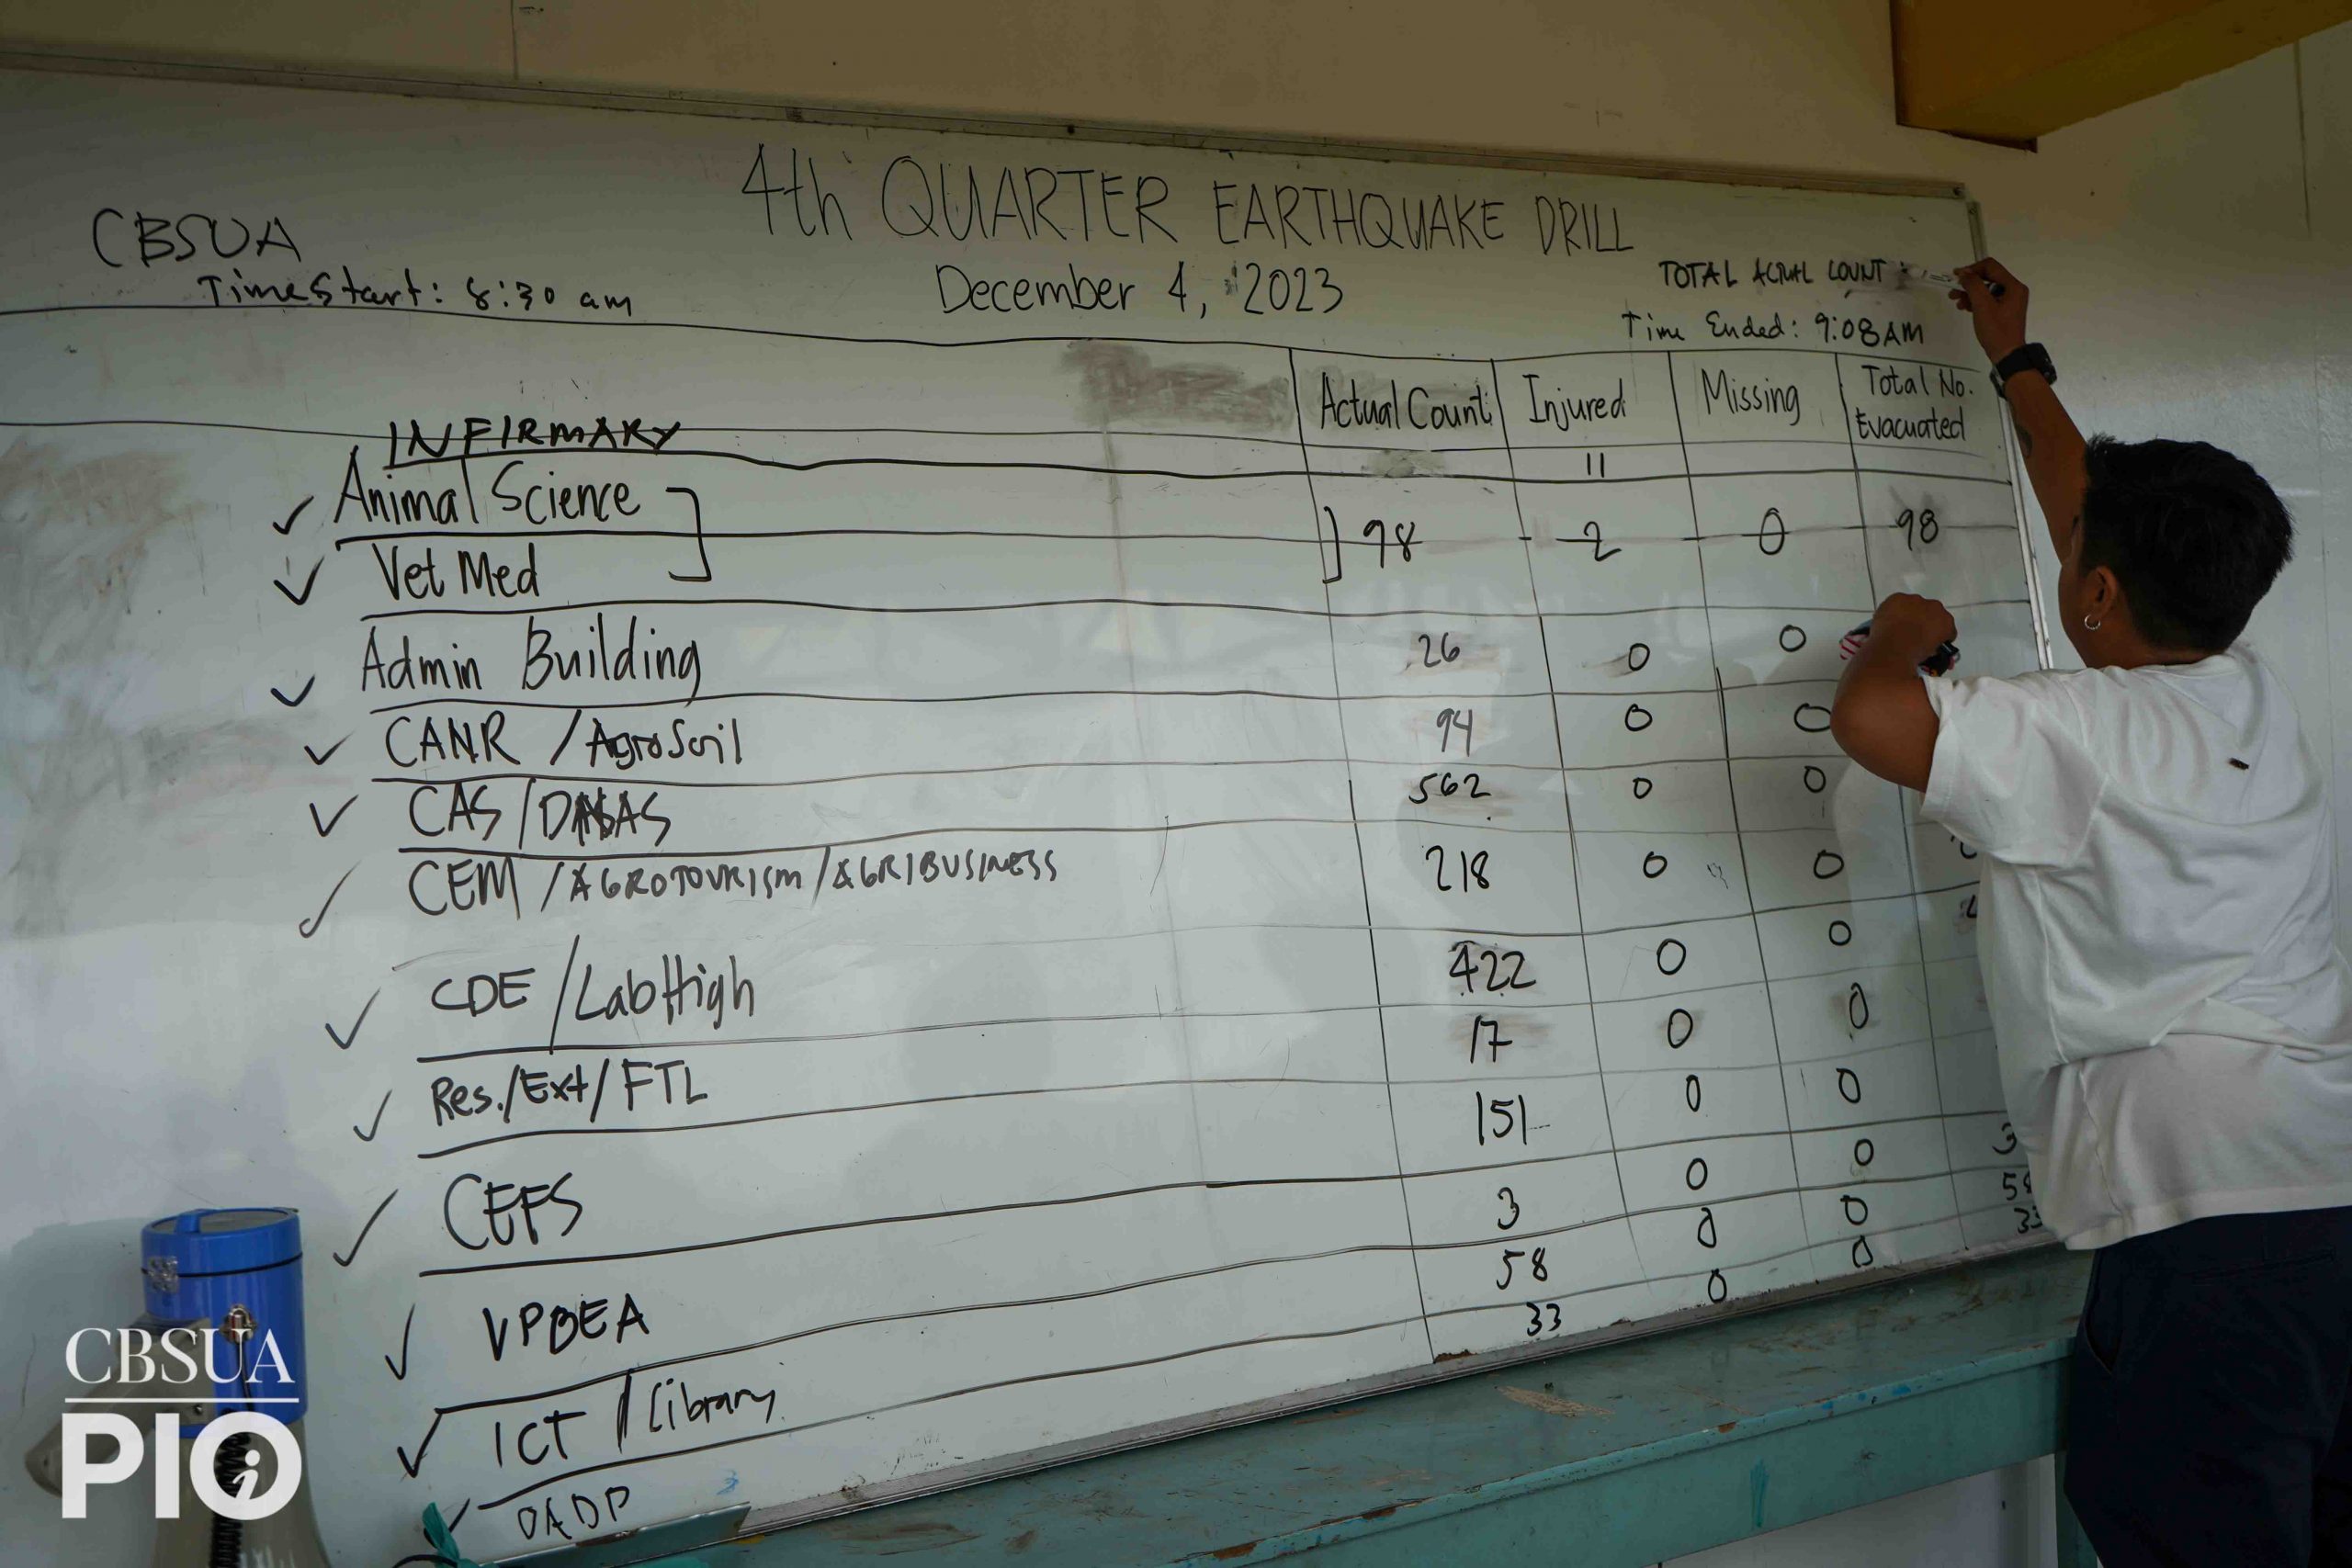 4th QUARTER EARTHQUAKE DRILL
CBSUA
December 4, 2023
TOTAL ACTUAL COUNT :
Time Start: 8:30 am
Time Ended: 9:08AM
Actual Count Injured Missing Total No. Evacuated
INFIRMARY 11
Animal Science
Vet Med 98 2 0 98
Admin Building 26 0 0
CANR / AgroSoil 94 0 0
CAS / 562 0 0
CEM / AGROTOURISM / AGRIBUSINESS 218 0 0
CDE / LabHigh 422 0 0
Res./Ext/FTL 17 0 0
CEFS 151 0 0
3 0 0 3
ICT / Library 58 0 0
OADP 33 0 0
CBSUA
PIO